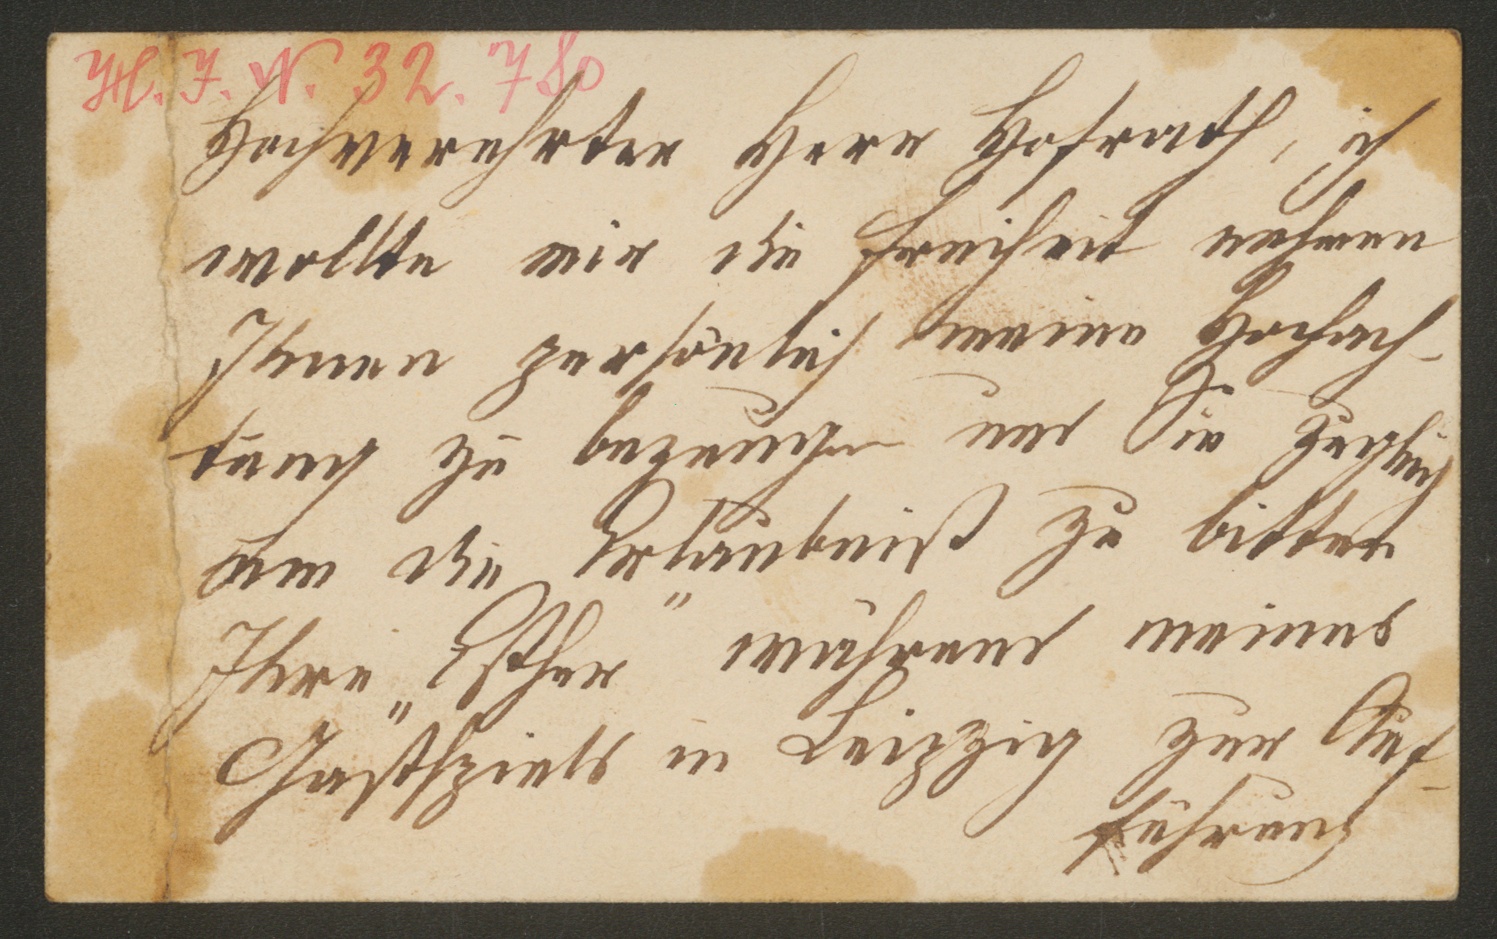 H. I. N. 32.780
Hochverehrter Herr Hofrath, ich
wollte mir die Freiheit nehmen
Ihnen persönlich meine Hochach-
tung zu bezeugen und Sie zugleich
um die Erlaubniß zu bitten
Ihre „Esther" während meines
Gastspiels in Leipzig zur Auf-
führung